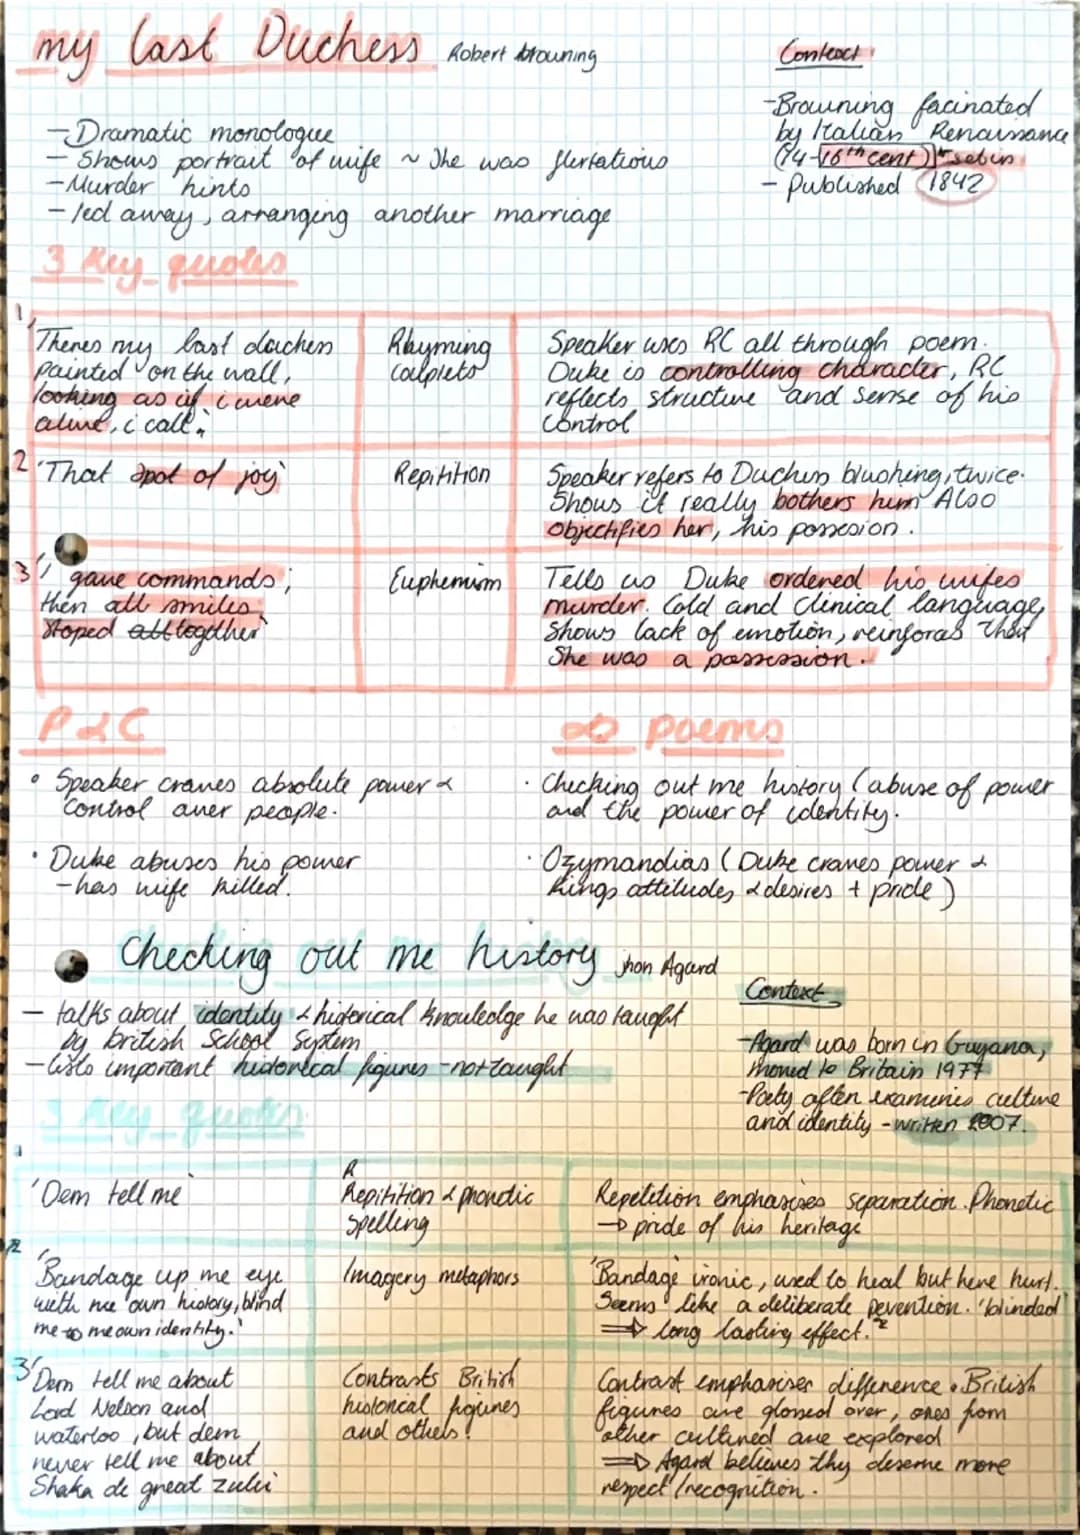 my last Duchess Robert browning
Context
- Dramatic monologue
- Shows portrait of wife ~ She was flertatious
- Murder hints
- led away, arranging another marriage
- Browning facinated
by Italian Renaissance
(14-16th cent) set in
- Published 1842
3 Key quotes
1 'Theres my last duchess
painted on the wall,
looking as if i were
alive, i call'.
Rhyming
couplets
Speaker uses RC all through poem.
Duke is controlling character, RC
reflects structure and sense of his
control
2 'That spot of joy'
Repitition
Speaker refers to Duchess blushing, twice.
Shows it really bothers him Also
objectifies her, his possesion.
3 'i gave commands;
then all smiles
stoped alltogether'
Euphemism
Tells us Duke ordered his wifes
murder. Cold and clinical language,
shows lack of emotion, reinforces that
She was a possession.
P & C
• Speaker craves absolute power &
control over people.
• Duke abuses his power
- has wife killed.
∞ poems
· Checking out me history (abuse of power
and the power of identity.
· Ozymandias (Duke craves power &
kings attitudes & desires + pride)
Checking out me history jhon Agard
- talks about identity & historical knowledge he was taught
by british School System
- lists important historical figures - not taught
Context
- Agard was born in Guyana,
moved to Britain 1977
- Poety often examines culture
and identity - written 2007.
3 Key quotes
1
'Dem tell me'
R
Repitition & phonetic
spelling
Repetition emphasises separation. Phonetic
→ pride of his heritage
2
'Bandage up me eye
with me own history, blind
me to me own identity.'
Imagery metaphors
'Bandage' ironic, used to heal but here hurt.
Seems like a deliberate pevention. 'blinded'
⇒ long lasting effect.
3 'Dem tell me about
Lord Nelson and
waterloo, but dem
never tell me about
Shaka de great zulu'
Contrasts British
historical figures
and others!
Contrast emphasises difference. British
figures are glossed over, ones from
other cultured are explored
⇒ Agard believes thy deserve more
respect/recognition.